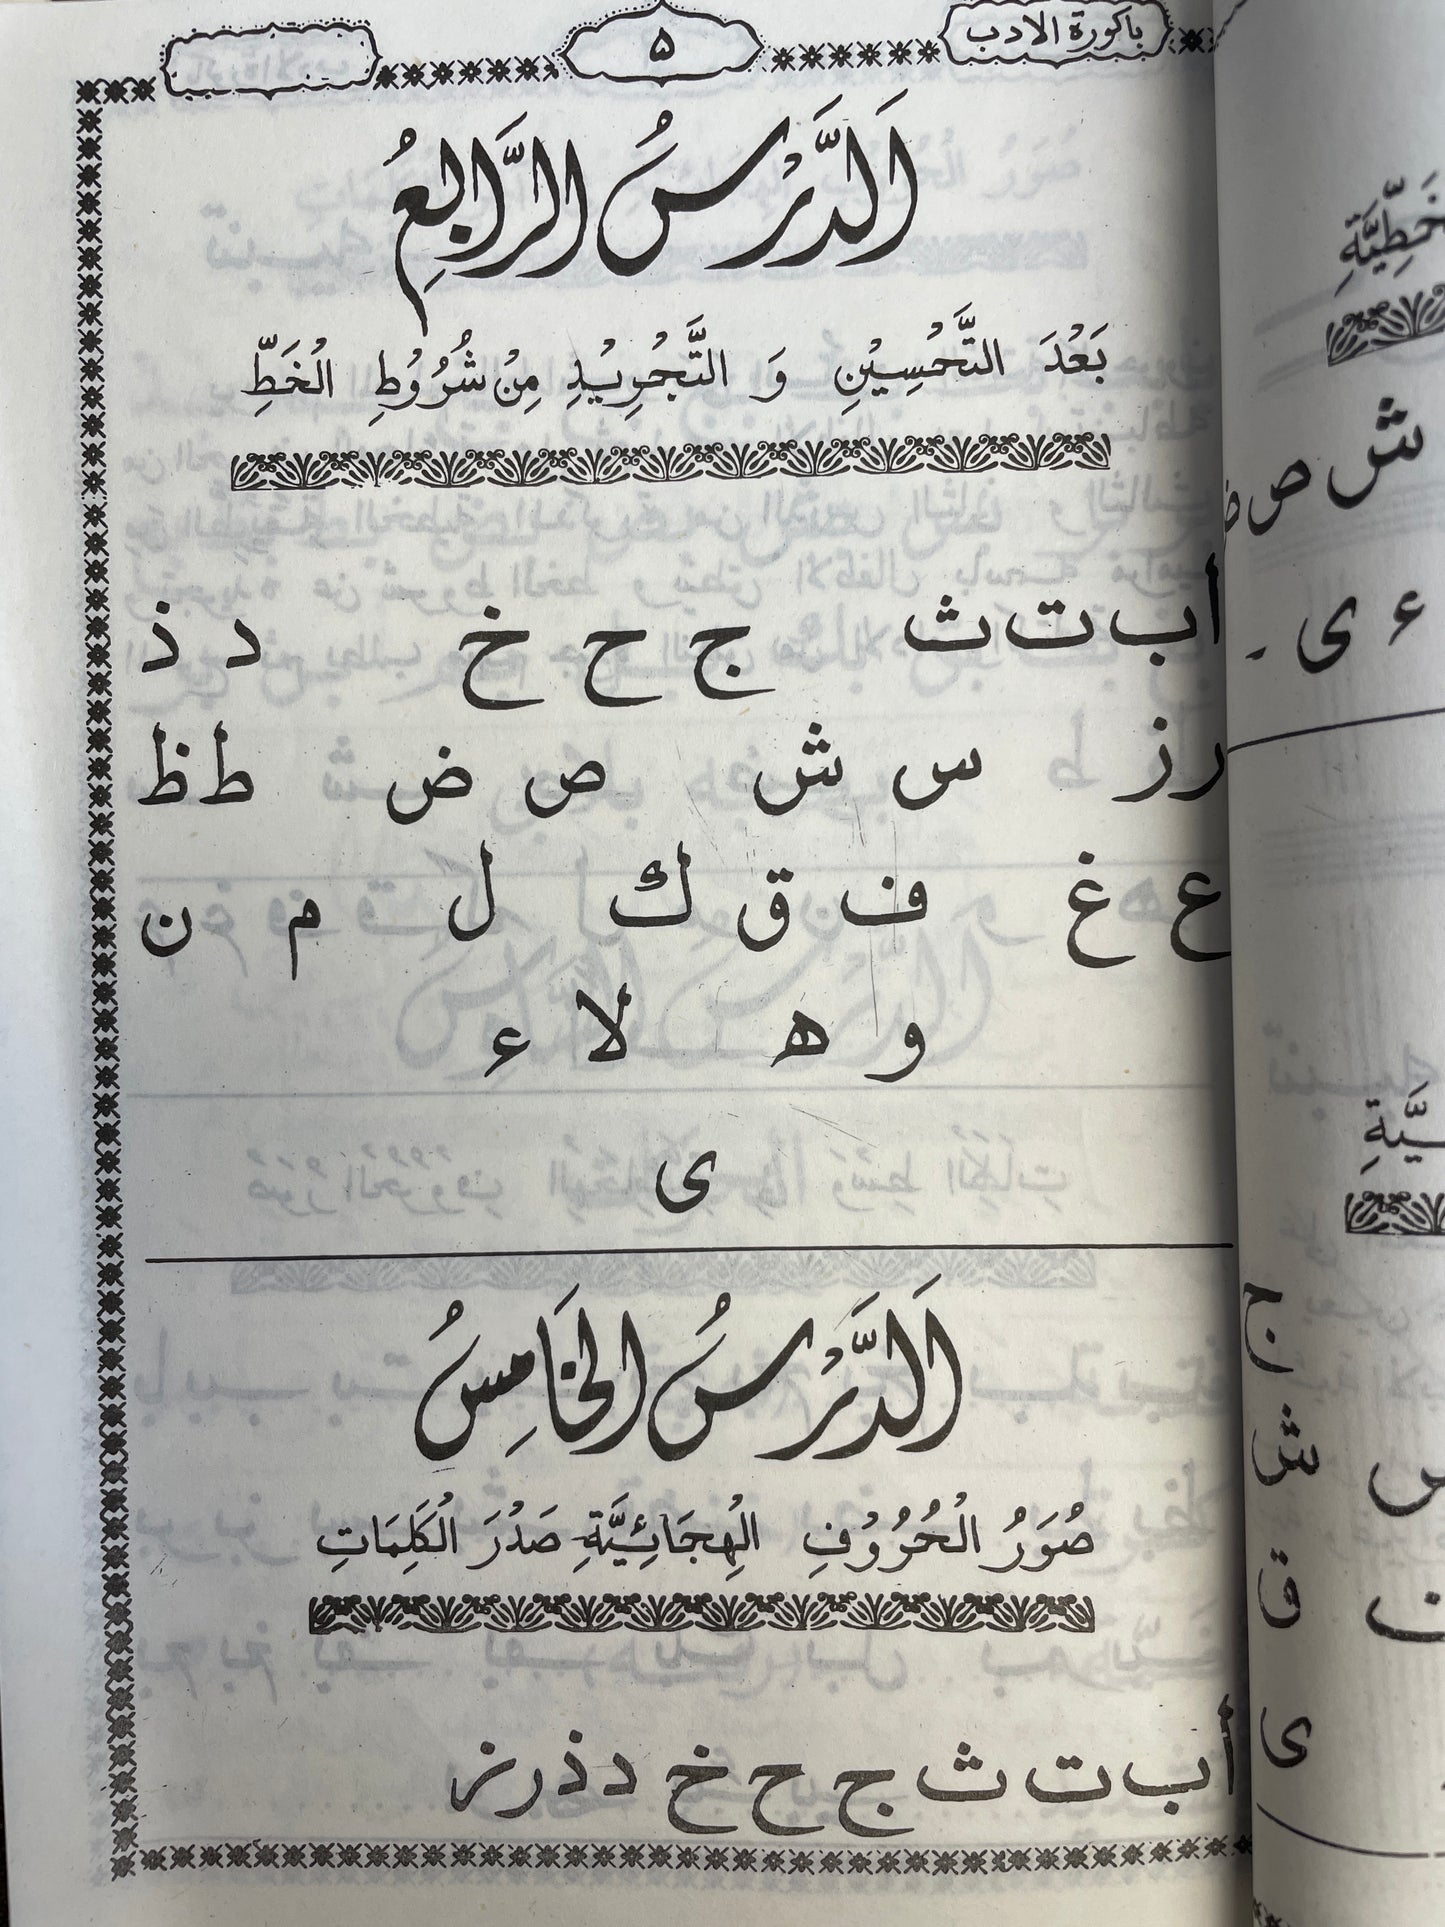 باكورة الادب
۵
اَلدَّرْسُ الرَّابِعُ
بَعْدَ التَّحْسِيْنِ وَ التَّجْرِيْدِ مِنْ شُرُوْطِ الْخَطِّ
ا ب ت ث ج ح خ د ذ
ر ز س ش ص ض ط ظ
ع غ ف ق ك ل م ن
و ه لا ء
ى
اَلدَّرْسُ الْخَامِسُ
صُوَرُ الْحُرُوْفِ الْهِجَائِيَّةِ صَدْرَ الْكَلِمَاتِ
أ ب ت ث ج ح خ د ذ ر ز
ش ص
ء ى
ج
ش
ق
ى